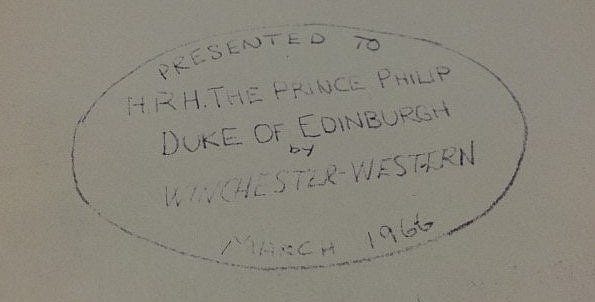 PRESENTED TO
H.R.H. THE PRINCE PHILIP
DUKE OF EDINBURGH
by
WINCHESTER-WESTERN
MARCH 1966